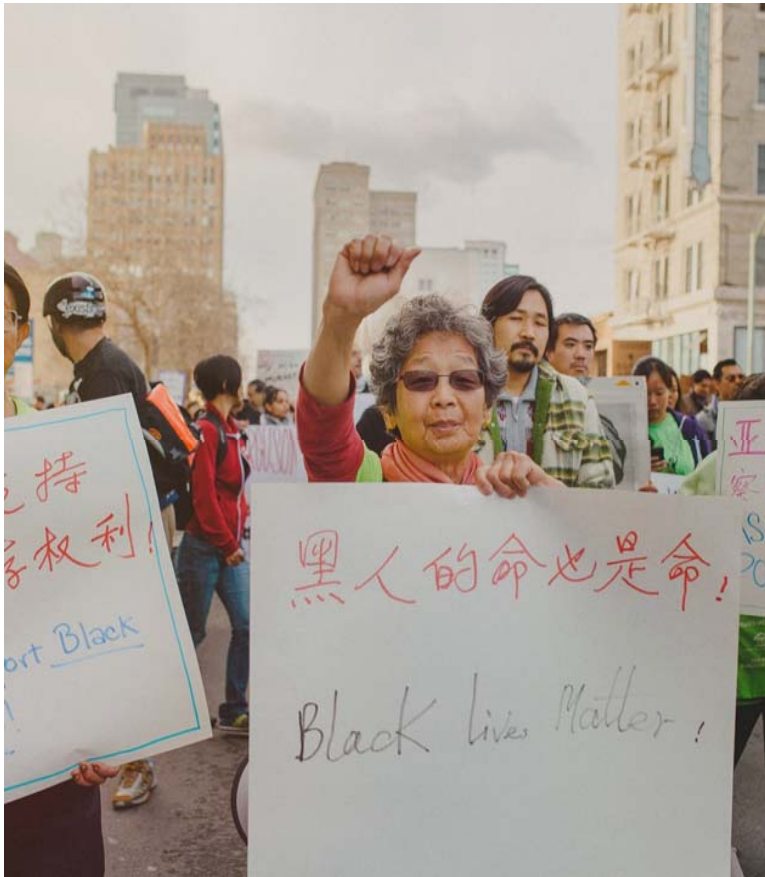 支持
权利!
ort Black
!
黑人的命也是命!
Black lives Matter!
亚
察